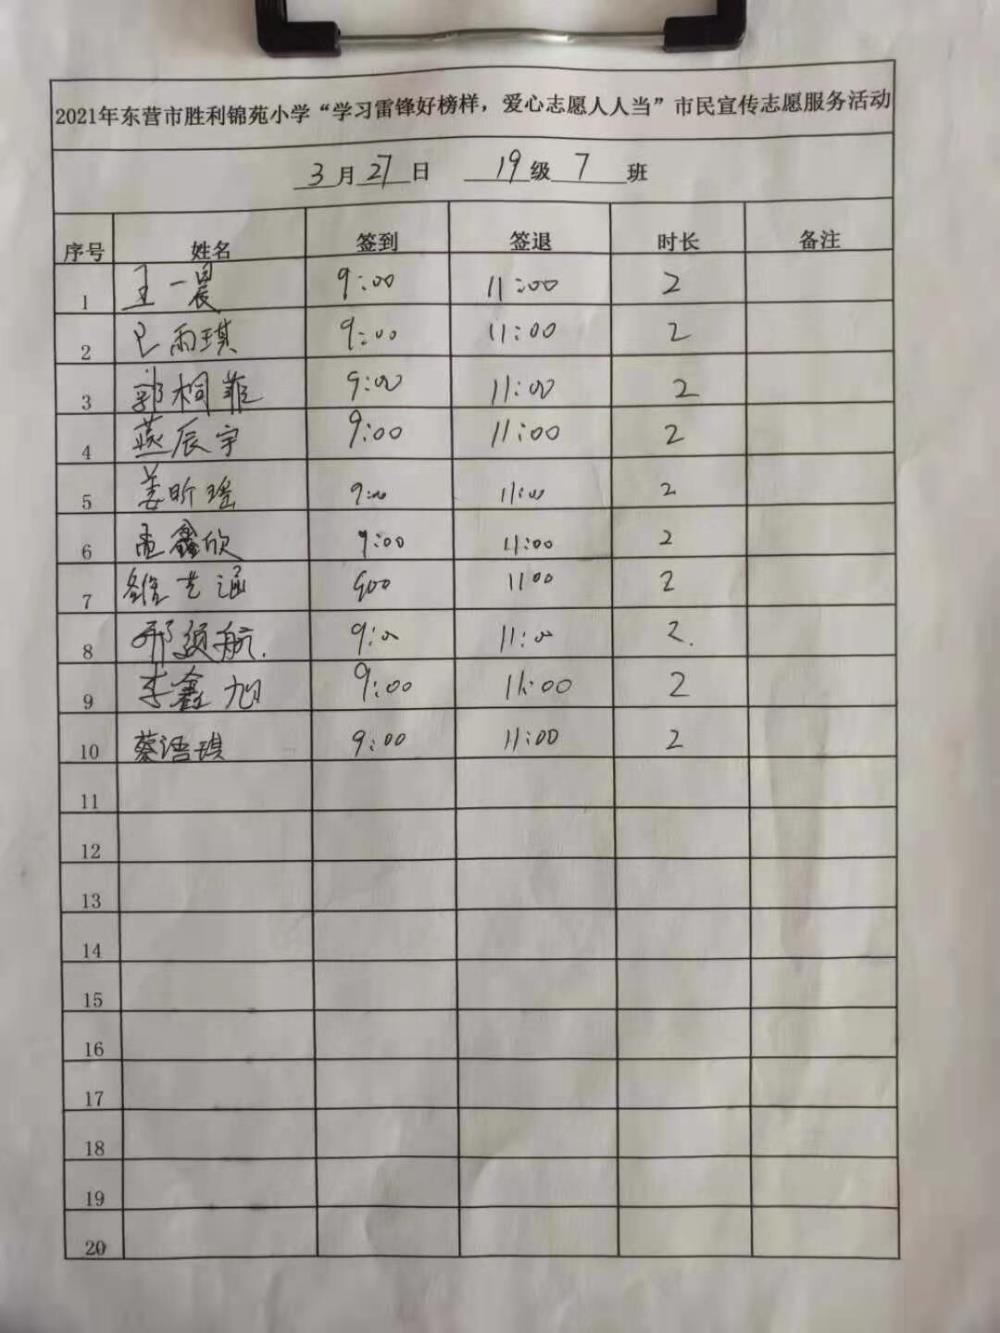 2021年东营市胜利锦苑小学“学习雷锋好榜样，爱心志愿人人当”市民宣传志愿服务活动
3月27日 19级7班
序号 姓名 签到 签退 时长 备注
1 王一晨 9:00 11:00 2
2 巴雨琪 9:00 11:00 2
3 郭桐菲 9:00 11:00 2
4 燕辰宇 9:00 11:00 2
5 姜昕瑶 9:00 11:00 2
6 孟鑫欣 9:00 11:00 2
7 艺涵 900 1100 2
8 邢颂航. 9:00 11:00 2.
9 李鑫旭 9:00 11:00 2
10 蔡语琪 9:00 11:00 2
11
12
13
14
15
16
17
18
19
20